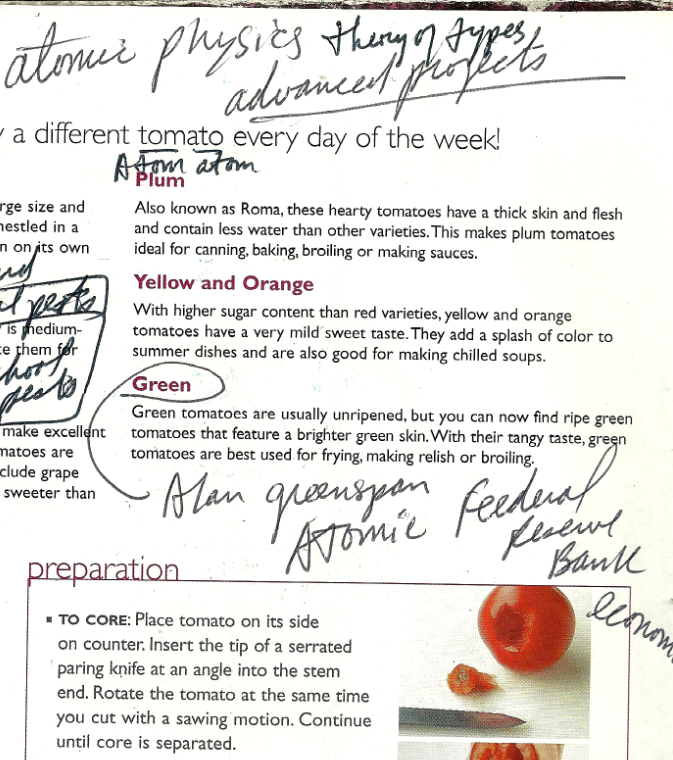 atomic physics theory of types
advanced projects
a different tomato every day of the week!
Atom atom
Plum
Also known as Roma, these hearty tomatoes have a thick skin and flesh
and contain less water than other varieties. This makes plum tomatoes
ideal for canning, baking, broiling or making sauces.
Yellow and Orange
With higher sugar content than red varieties, yellow and orange
tomatoes have a very mild sweet taste. They add a splash of color to
summer dishes and are also good for making chilled soups.
Green
Green tomatoes are usually unripened, but you can now find ripe green
tomatoes that feature a brighter green skin. With their tangy taste, green
tomatoes are best used for frying, making relish or broiling.
rge size and
nestled in a
n on its own
pests
is medium-
te them for
hool
pests
make excellent
matoes are
clude grape
sweeter than
Alan greenspan
Atomic
Feederal
Reserve
Bank
econom
preparation
▪ TO CORE: Place tomato on its side
on counter. Insert the tip of a serrated
paring knife at an angle into the stem
end. Rotate the tomato at the same time
you cut with a sawing motion. Continue
until core is separated.